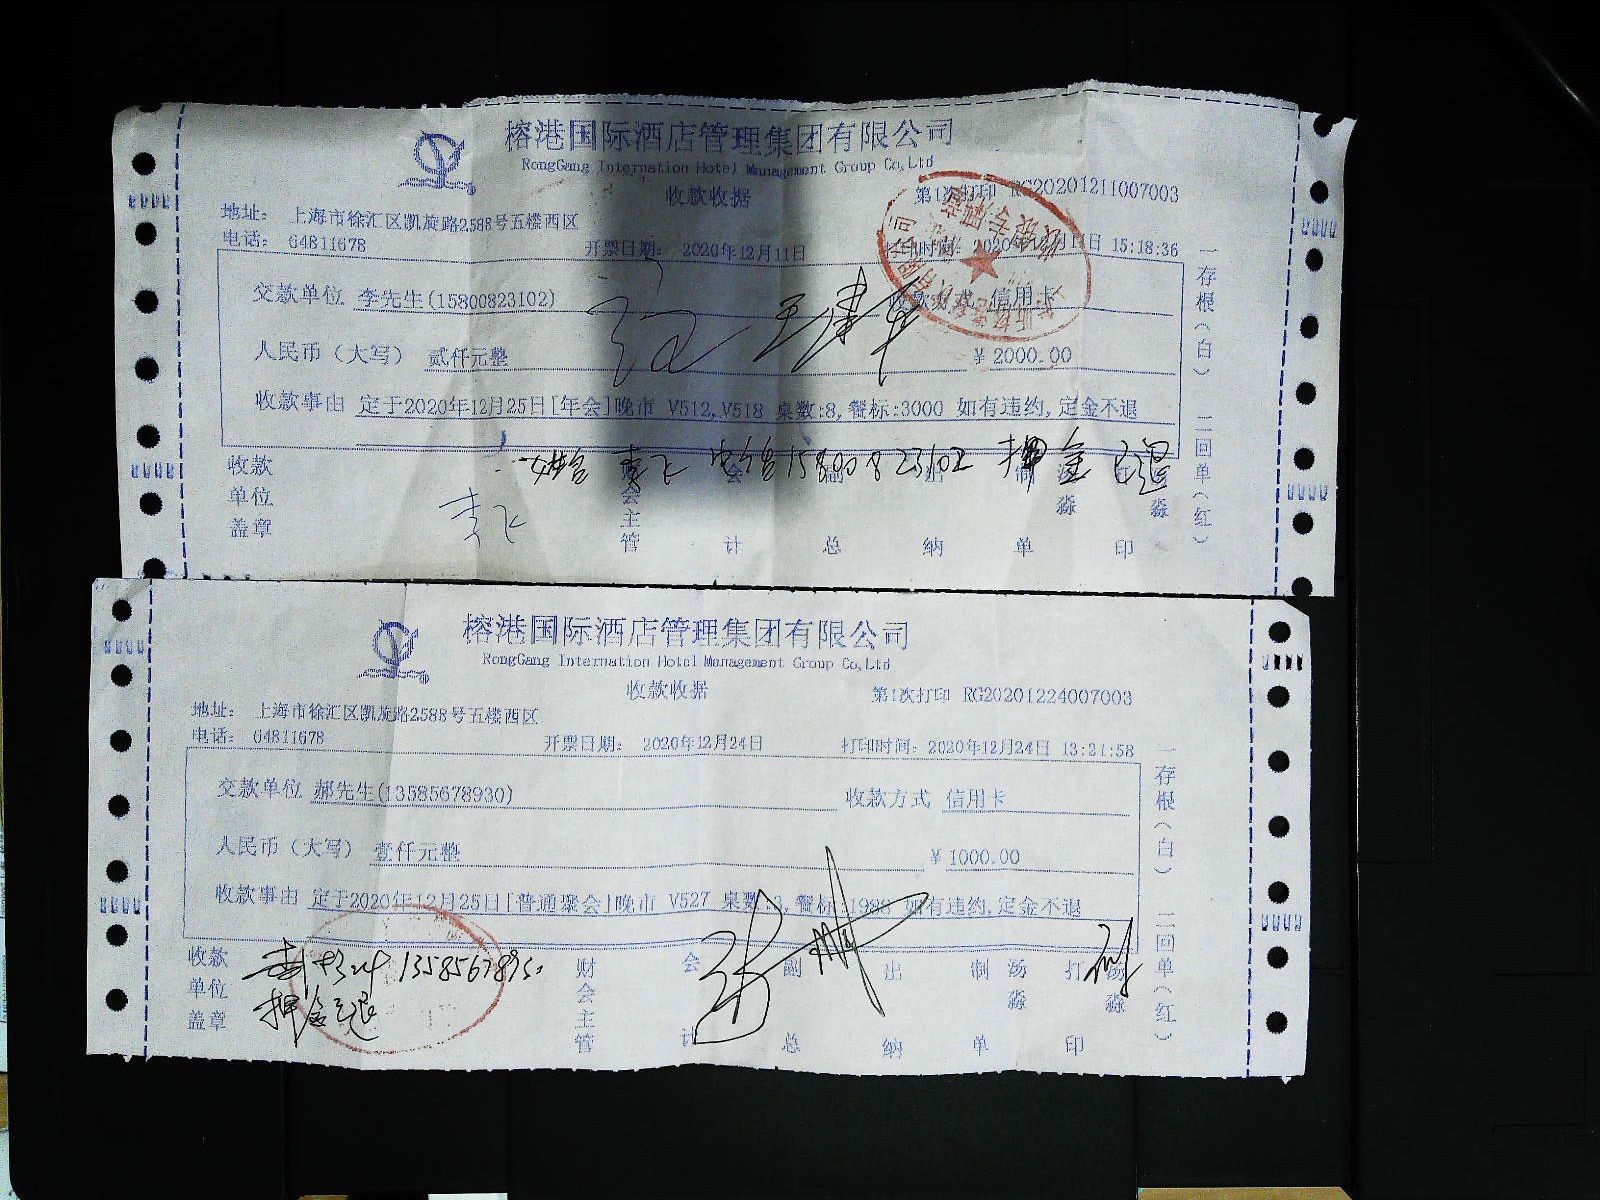 榕港国际酒店管理集团有限公司
RongGang Internation Hotel Management Group Co,Ltd
收款收据
第1次打印 RG20201211007003
地址： 上海市徐汇区凯旋路2588号五楼西区
电话： 64811678
开票日期： 2020年12月11日
打印时间: 2020年12月11日 15:18:36
交款单位 李先生(15800823102)
收款方式 信用卡
人民币（大写） 贰仟元整
¥ 2000.00
收款事由 定于2020年12月25日[年会]晚市 V512,V518 桌数:8,餐标:3000 如有违约,定金不退
15800823102 押金已退
收款单位盖章
财会主管
会计
副总
出纳
制单 汤淼
打印 汤淼
一存根（白） 二回单（红）
榕港国际酒店管理集团有限公司
RongGang Internation Hotel Management Group Co,Ltd
收款收据
第1次打印 RG20201224007003
地址： 上海市徐汇区凯旋路2588号五楼西区
电话： 64811678
开票日期： 2020年12月24日
打印时间: 2020年12月24日 13:21:58
交款单位 郝先生(13585678930)
收款方式 信用卡
人民币（大写） 壹仟元整
¥ 1000.00
收款事由 定于2020年12月25日[普通聚会]晚市 V527 桌数:3,餐标:1988 如有违约,定金不退
13585678930
押金已退
收款单位盖章
财会主管
会计
副总
出纳
制单 汤淼
打印 汤淼
一存根（白） 二回单（红）